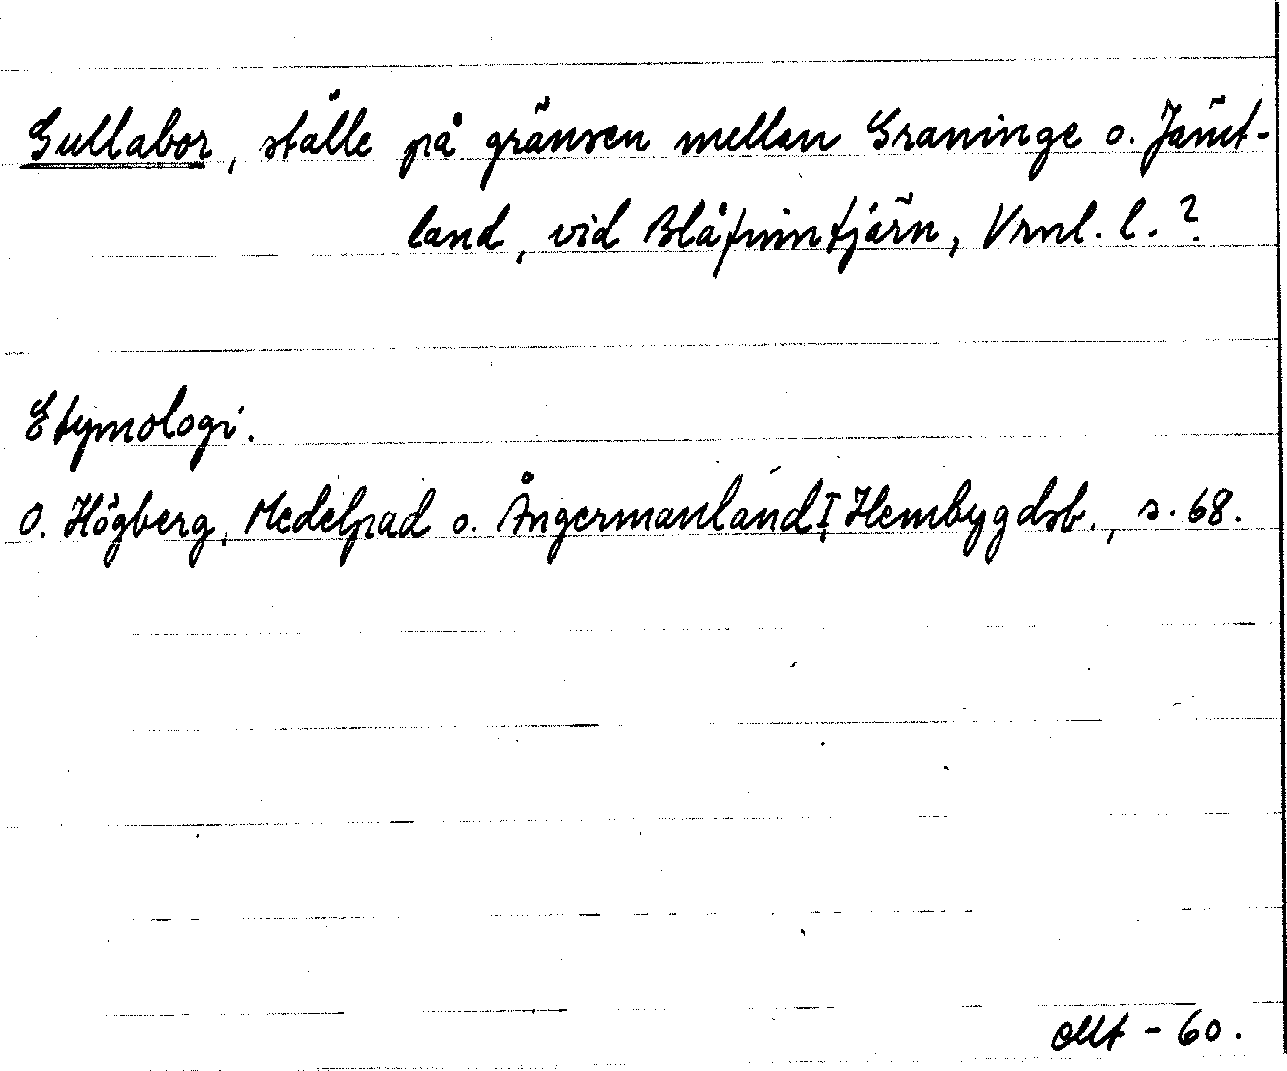 Gullabor, ställe på gränsen mellan Graninge o. Jämt-
land, vid Blåfinntjärn, Vrml. l.?
Etymologi.
O. Högberg, Medelpad o. Ångermanland I, Hembygdsb., s. 68.
- 60.